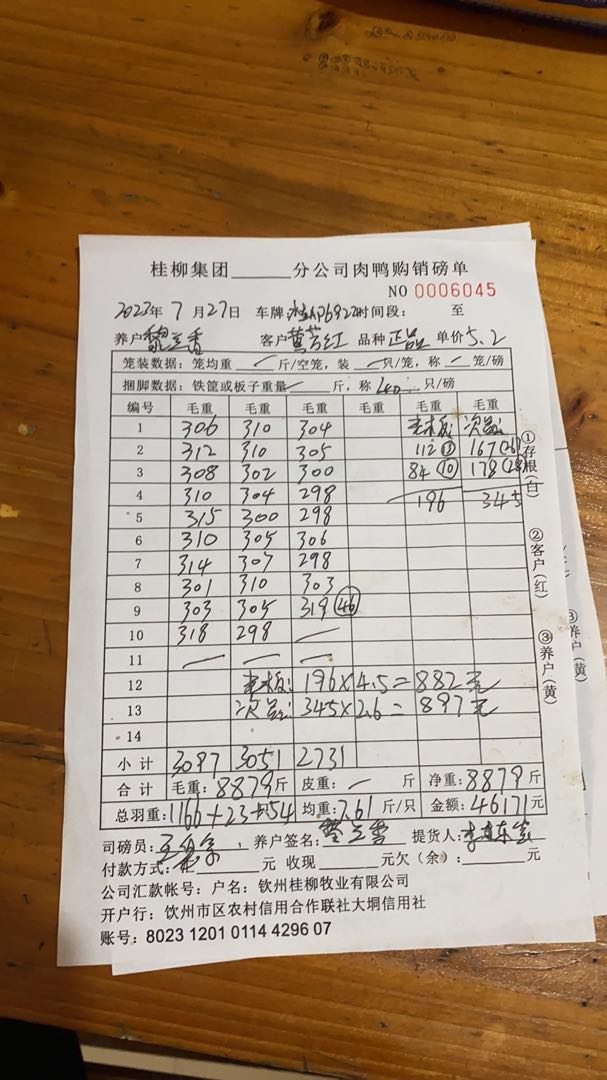 桂柳集团______分公司肉鸭购销磅单
NO 0006045
2023年 7月27日 车牌: 6922时间段: 至
养户黎兰香 客户黄芳红 品种正品 单价5.2
笼装数据: 笼均重 / 斤/空笼, 装 / 只/笼, 称 / 笼/磅
捆脚数据: 铁筐或板子重量/ 斤, 称40 只/磅
编号 毛重 毛重 毛重 毛重 毛重 毛重
1 306 310 304 次品:
2 312 310 305 112 167
3 308 302 300 84⑩ 178
4 310 304 298 196 345
5 315 300 298
6 310 305 306
7 314 307 298
8 301 310 303
9 303 305 319(46)
10 318 298 —
11 — — —
12 196×4.5=882元
13 次品: 345×2.6=897元
14
小计 3097 3051 2731
合计 毛重: 8879斤 皮重: — 斤 净重: 8879斤
总羽重: 1166+23+54 均重: 7.61斤/只 金额: 46171元
司磅员: 养户签名: 黎兰香 提货人:
付款方式: ______元 收现______元欠(余): ______元
公司汇款帐号: 户名: 钦州桂柳牧业有限公司
开户行: 饮州市区农村信用合作联社大垌信用社
账号: 8023 1201 0114 4296 07
①存根(白)
②客户(红)
③养户(黄)
③养户(黄)